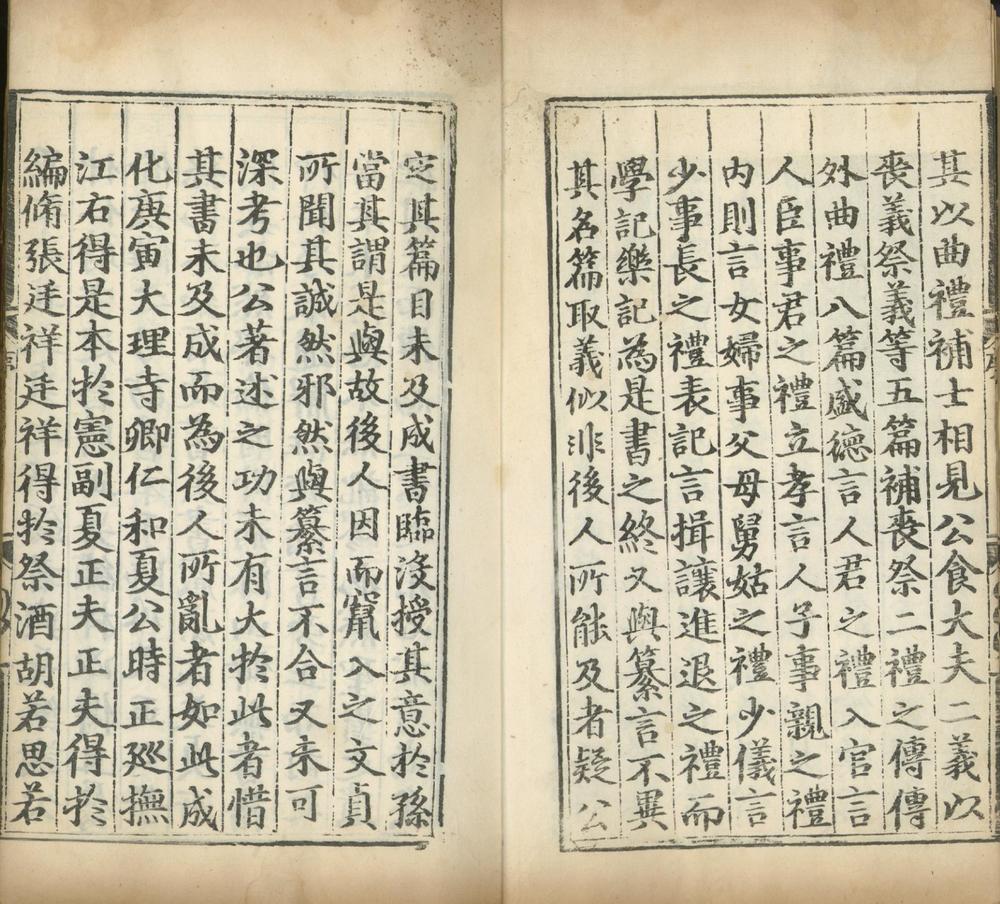 其以曲禮補士相見公食大夫二義以
喪義祭義等五篇補喪祭二禮之傳傳
外曲禮八篇盛德言人君之禮入官言
人臣事君之禮立孝言人子事親之禮
内則言女婦事父母舅姑之禮少儀言
少事長之禮表記言揖讓進退之禮而
學記樂記為是書之終又與纂言不異
其名篇取義似非後人所能及者疑公
定其篇目未及成書臨没授其意於孫
當其謂是與故後人因而竄入之文貞
所聞其誠然邪然與纂言不合又未可
深考也公著述之功未有大於此者惜
其書未及成而為後人所亂者如此成
化庚寅大理寺卿仁和夏公時正廵撫
江右得是本於憲副夏正夫正夫得於
編脩張廷祥廷祥得於祭酒胡若思若